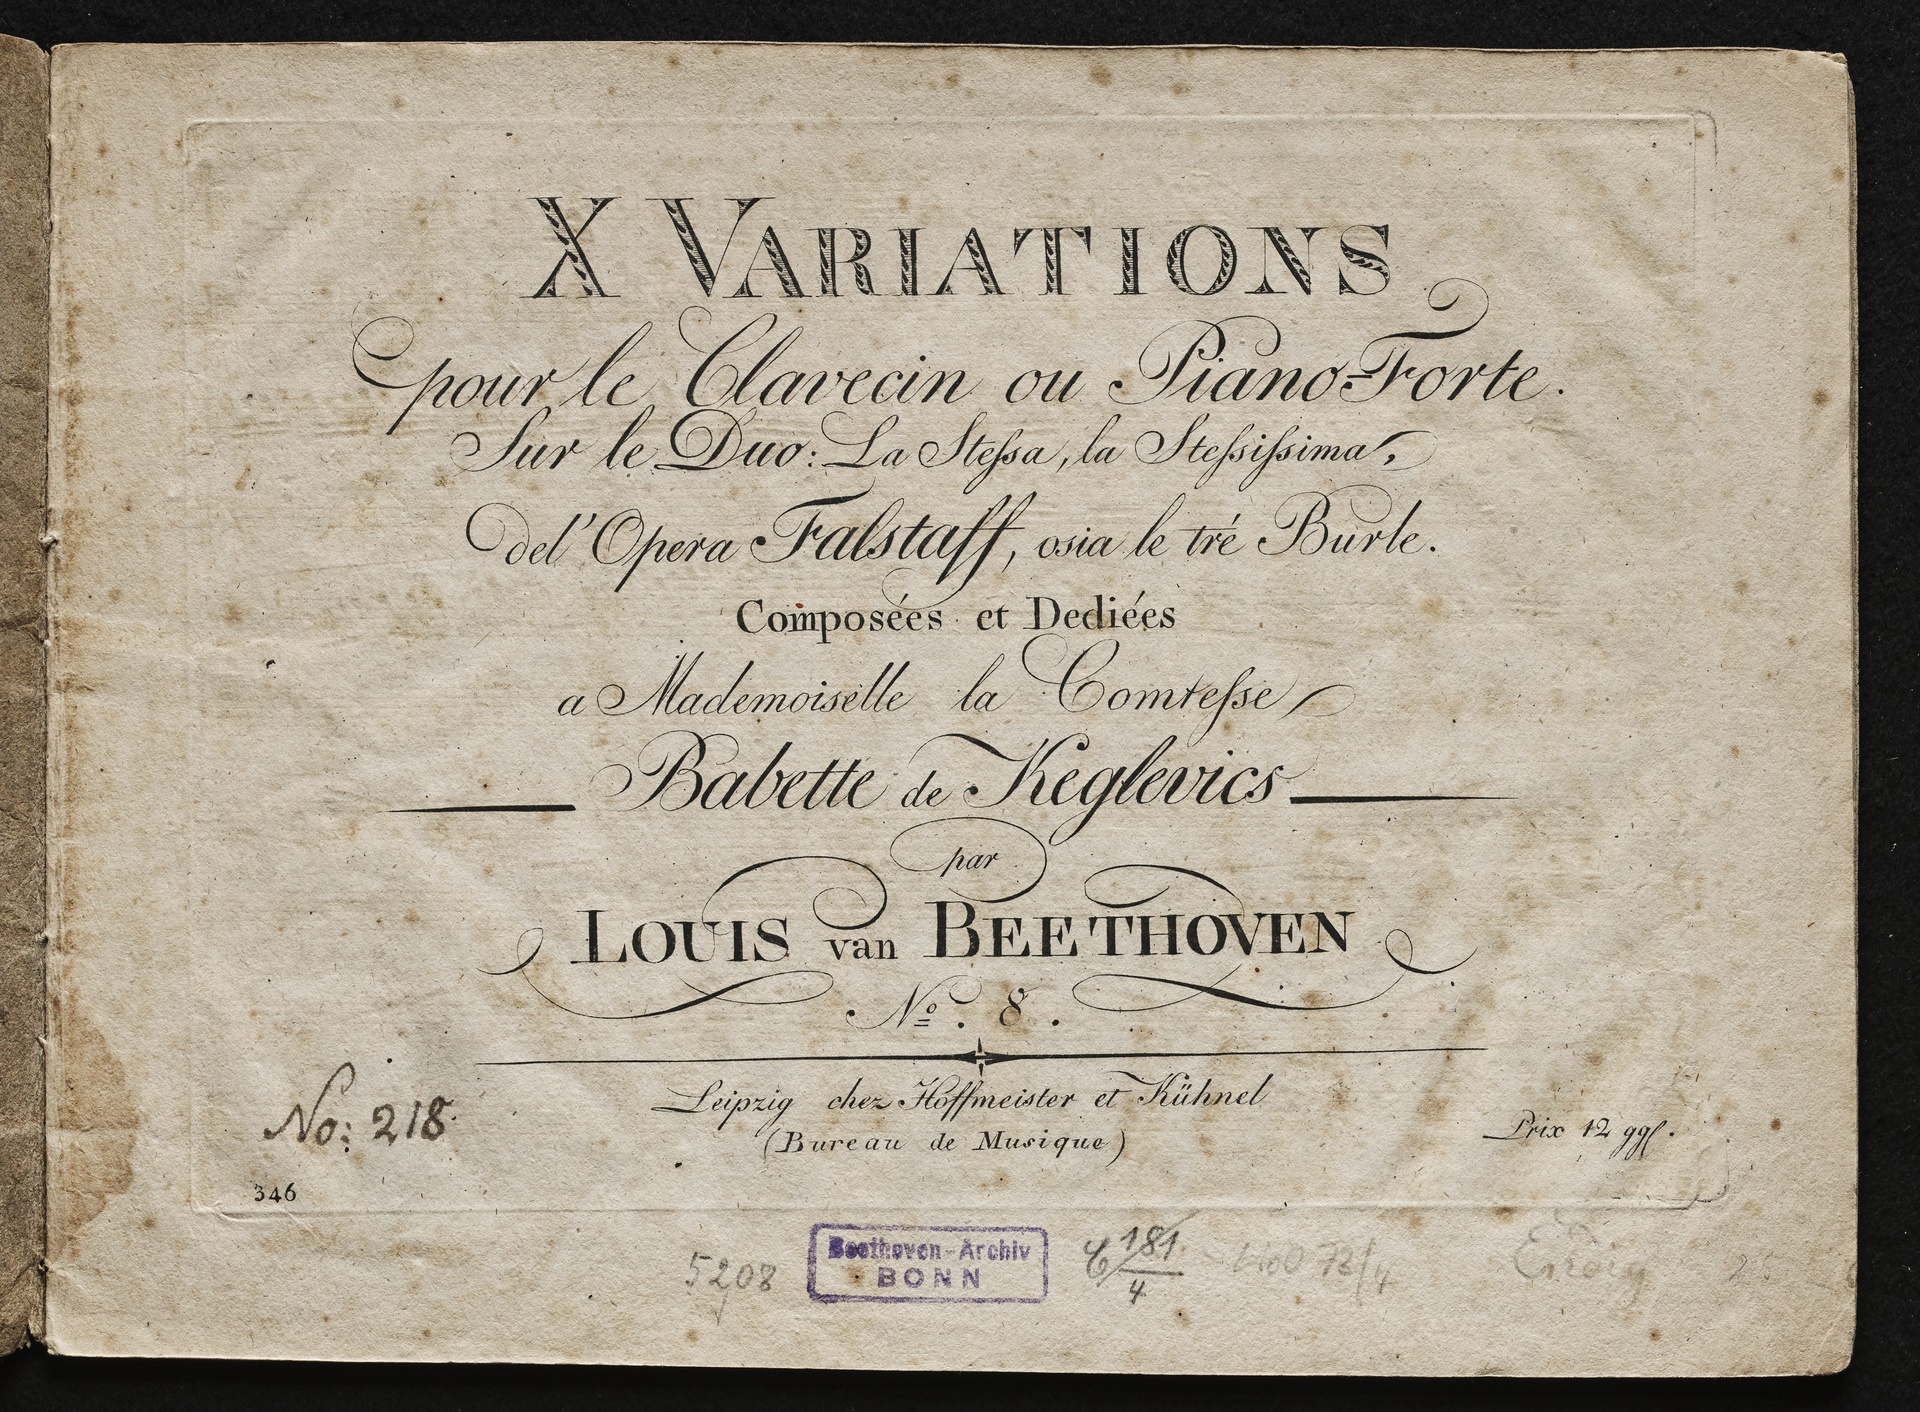 X VARIATIONS
pour le Clavecin ou Piano-Forte.
Sur le Duo: La Steſsa, la Steſsiſsima,
del' Opera Falstaff, osia le tré Burle.
Composées et Dediées
a Mademoiselle la Comteſse
Babette de Keglevics
par
LOUIS van BEETHOVEN
No. 8.
Leipzig chez Hoffmeister et Kühnel
(Bureau de Musique)
Prix 12 ggſ.
No: 218.
346
5208
Beethoven-Archiv
BONN
C 181/4
WoO 73/4